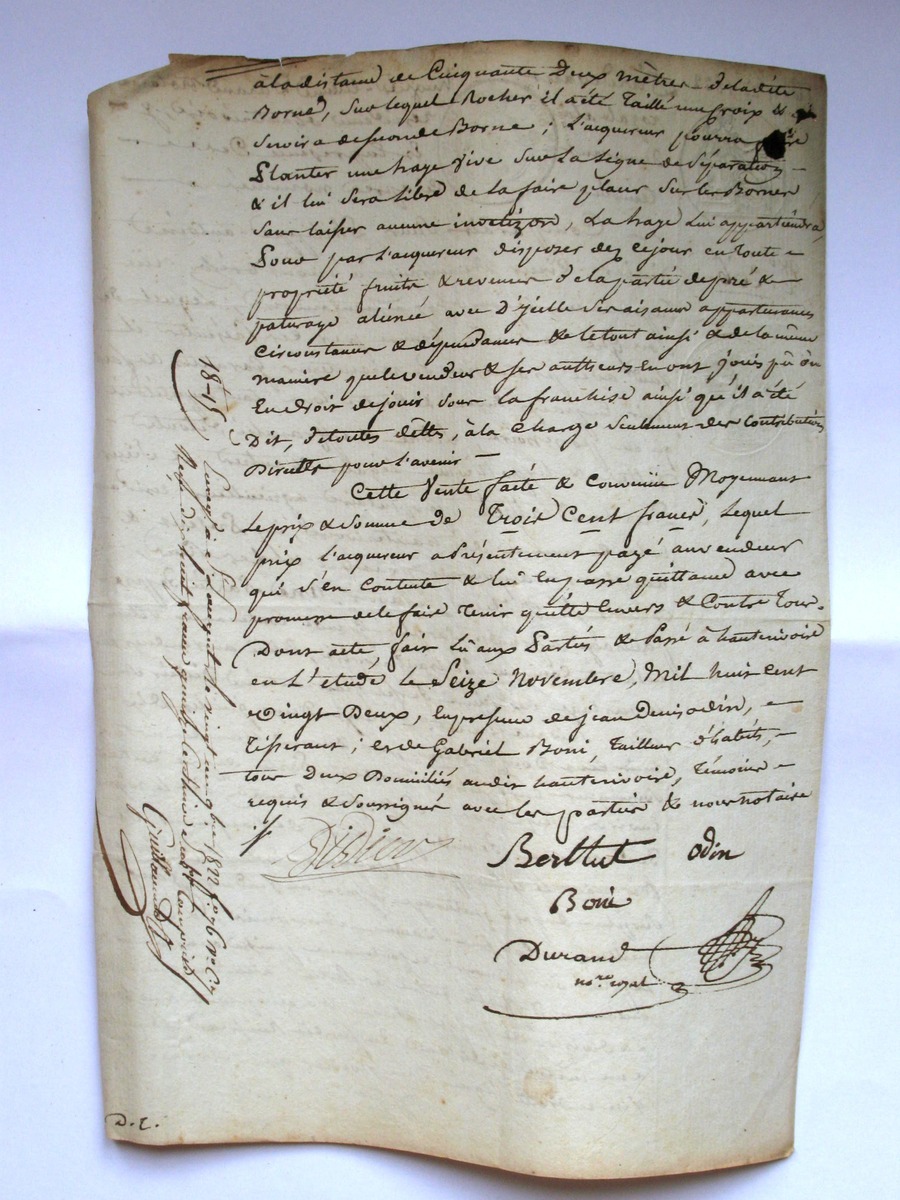 à la distance de Cinquante Deux mètres de ladite
Borne, sur lequel Rocher il a été Taillé une Croix &
Servira de seconde Borne ; L'acquereur pourra faire
Planter une haye vive sur la Ligne de Séparation
& il lui sera Libre de la faire placer sur les Bornes
sans laisser aucune invetizon, La haye Lui appartiendra,
Pour par L'acquereur disposer dez ce jour en toute
propriété fruits & revenus de la partie de pré &
paturage aliénée avec D'jcelle ses aisances appartenances
Circonstances & dépendances & le tout ainsi & de la même
maniere que le vendeur & ses autheurs en ont joui pû ou
En Droit de jouir sous la franchise ainsi qu'il a été
Dit, de toutes dettes, à la Charge seulement des Contributions
Directes pour l'avenir
Cette Vente faite & Convenüe Moyennant
Le prix & Somme de Trois Cent francs, Lequel
prix L'acquereur a Présentement payé au vendeur
qui s'en Contente & lui En passe quittance avec
promesse de le faire Tenir quitte Envers & Contre Tous.
Dont acte fait Lû aux Parties & Passé à hauterivoire
en L'étude le Seize Novembre, Mil huit Cent
Vingt Deux, En presence de jean Denis odin,
Tisserant ; et de Gabriel Boni, Tailleur d'habits,
tous Deux Domiciliés audit hauterivoire, Témoins
requis & Soussignés avec les parties & nous notaire
Didier
Berthut odin
Boni
Durand
no.re royal
18-15
Enregé à St Laurent le vingt 1822 f.o 76 v.o C.
Reçu dix huit francs quinze centimes compris
Guillaume
D. E.